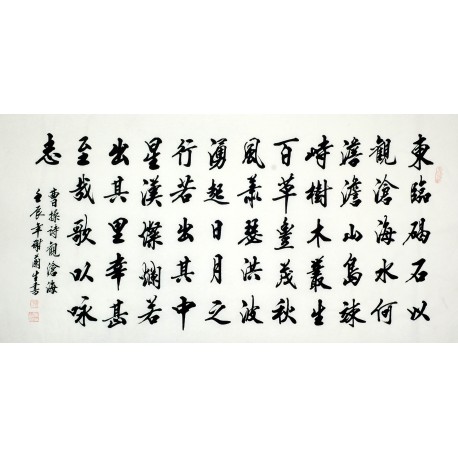 東臨碣石以
觀滄海水何
澹澹山島竦
峙樹木叢生
百草豐茂秋
風蕭瑟洪波
湧起日月之
行若出其中
星漢燦爛若
出其里幸甚
至哉歌以咏
志
曹操诗觀滄海
壬辰年書